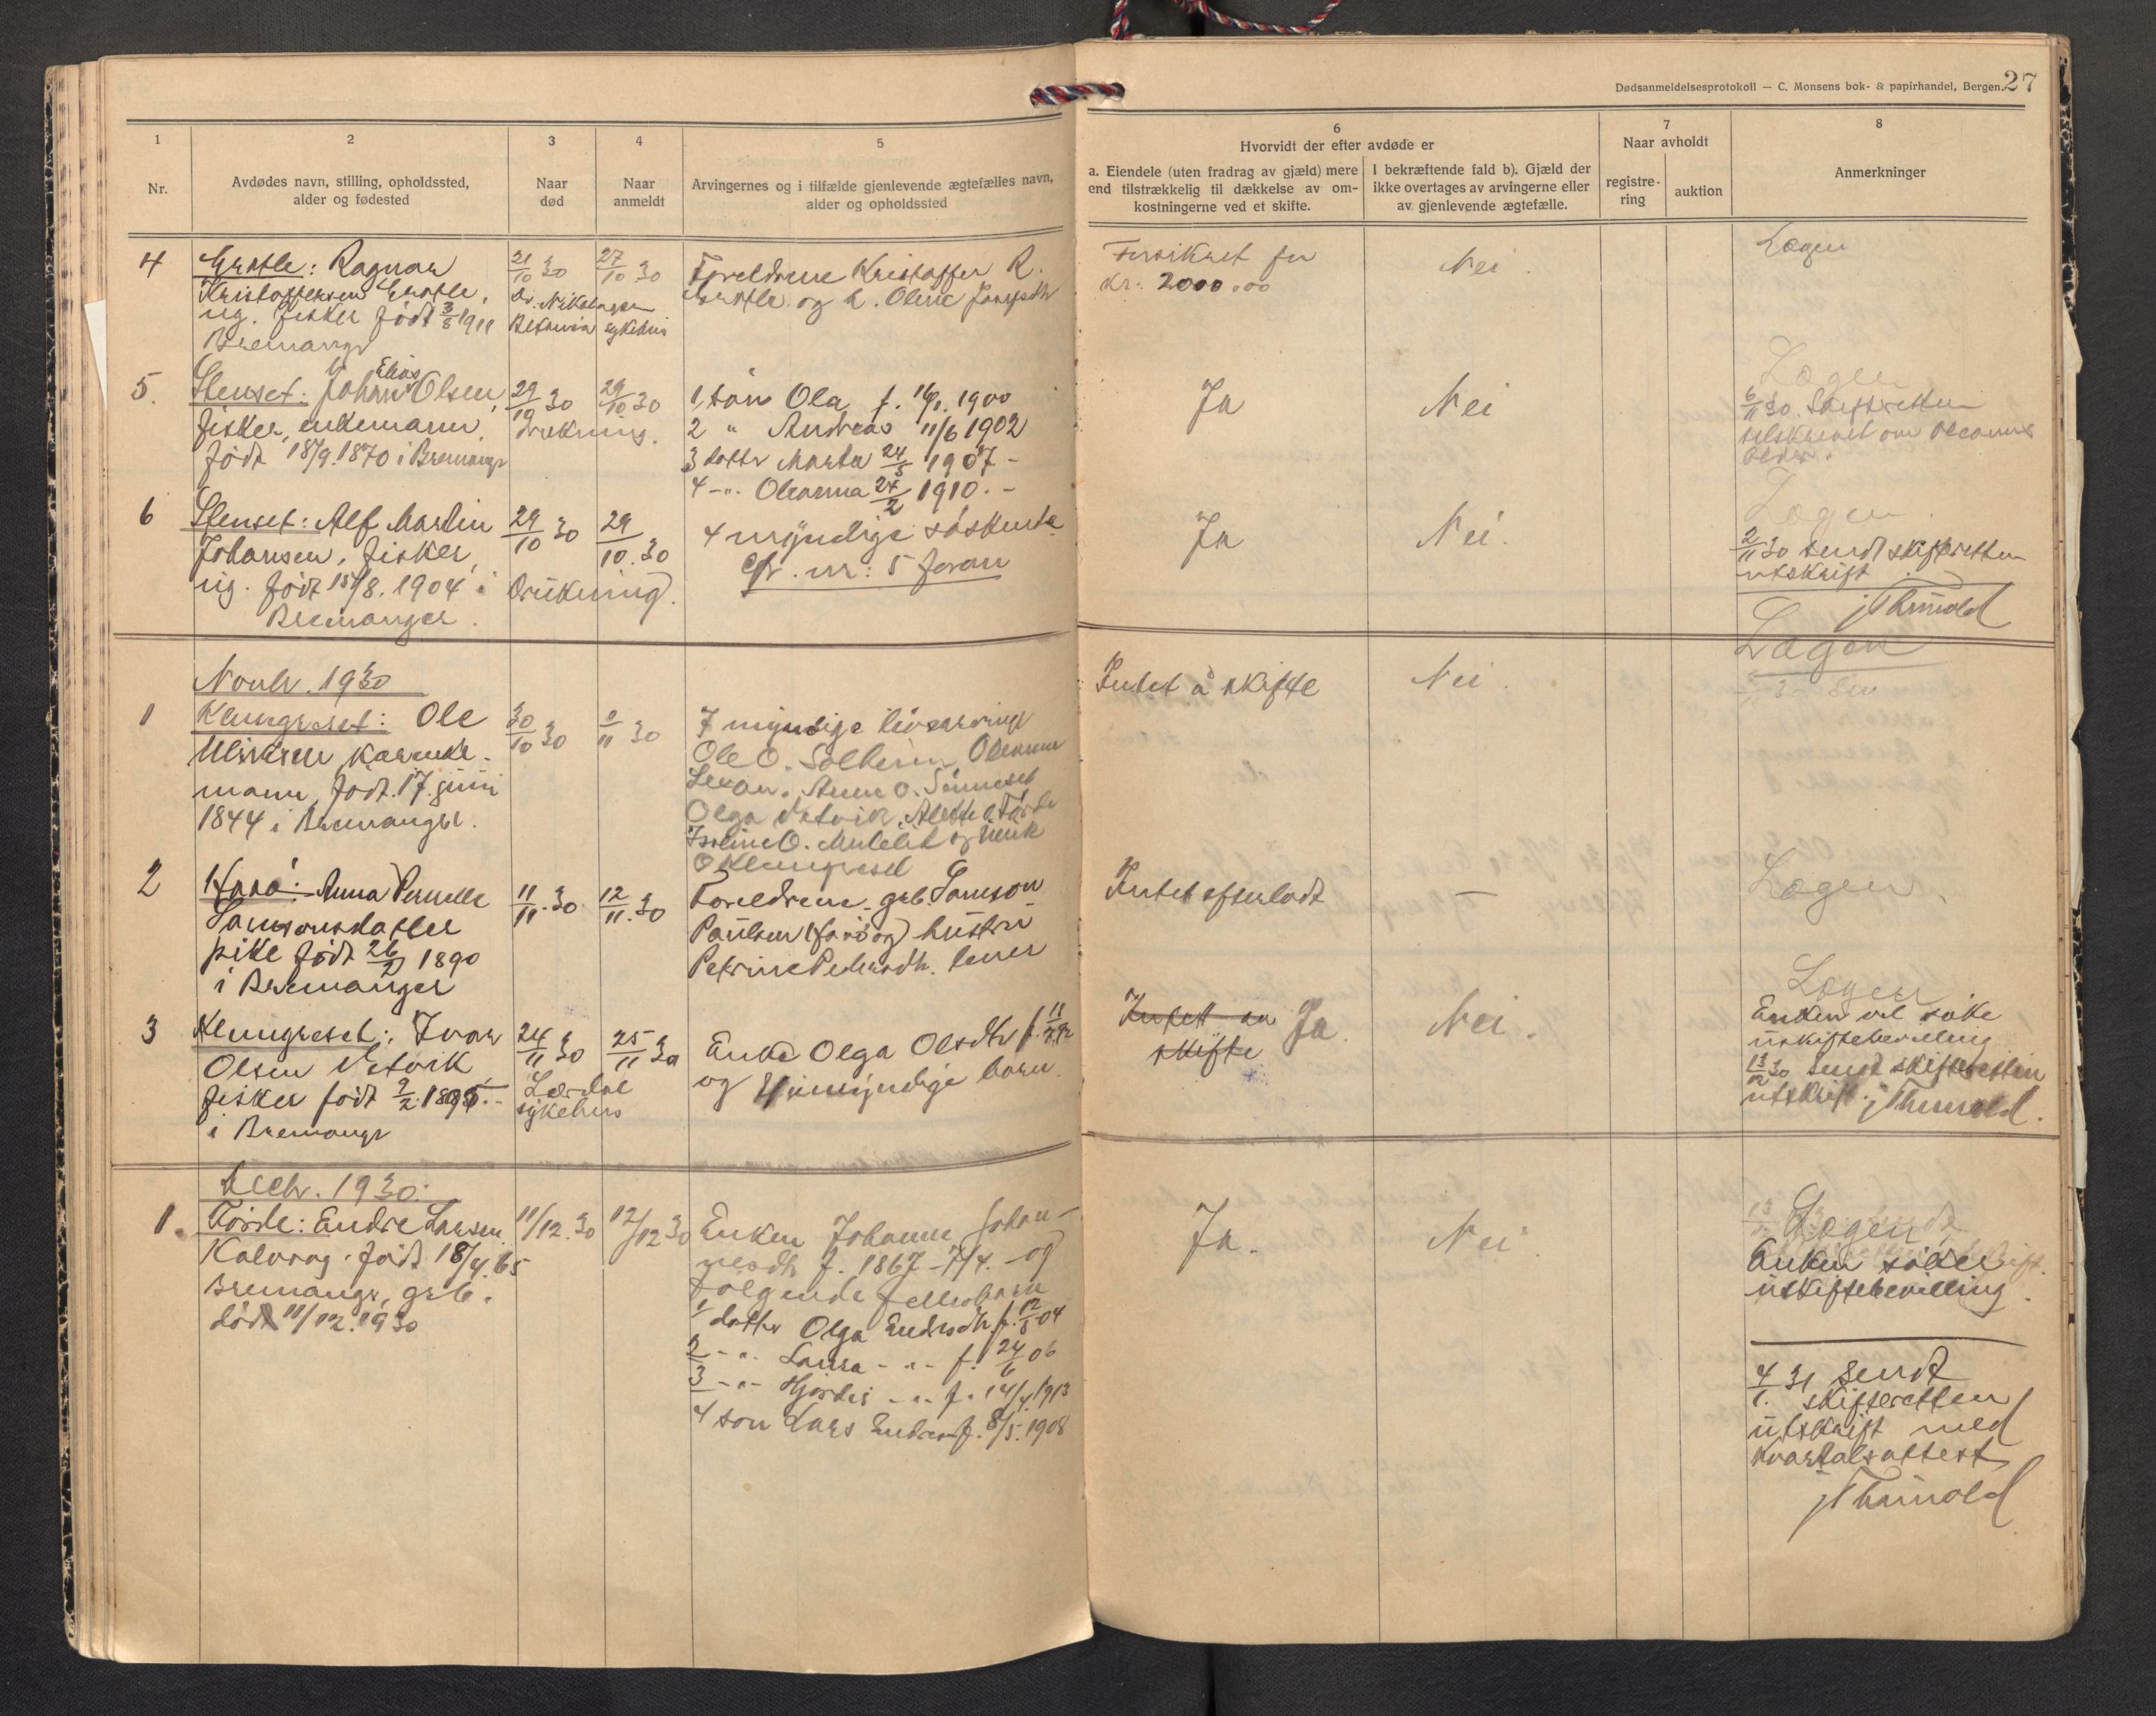 Dødsanmeldelsesprotokoll — C. Monsens bok- & papirhandel, Bergen.
27
1
Nr.
2
Avdødes navn, stilling, opholdssted,
alder og fødested
3
Naar
død
4
Naar
anmeldt
5
Arvingernes og i tilfælde gjenlevende ægtefælles navn,
alder og opholdssted
6
Hvorvidt der efter avdøde er
a. Eiendele (uten fradrag av gjæld) mere
end tilstrækkelig til dækkelse av om-
kostningerne ved et skifte.
I bekræftende fald b). Gjæld der
ikke overtages av arvingerne eller
av gjenlevende ægtefælle.
7
Naar avholdt
registre-
ring
auktion
8
Anmerkninger
4
Ragnar
Kristoffersen
ug. fisker født 3/8 1911
Bremanger
21/10 30
27/10 30
sykehus
Foreldrene Kristoffer R.
og h. Oline
Forsikret for
kr. 2000.00
Nei.
Lægen
5.
Stenset: Johan Elias Olsen,
fisker, enkemann,
født 18/9. 1870 i Bremanger
29/10 30
drukning.
29/10 30
1, søn Ola f. 1900
2 " Andreas 11/6 1902
3 datter Marta 24/5 1907 -
4 -"- Oleanna 24/2 1910. -
Ja
Nei
Lægen
6/11 30. Skifteretten
tilskrevet om Oleannas
alder.
6
Stenset: Alf Martin
Johansen, fisker,
ug. født 15/8. 1904 i
Bremanger.
29/10 30
Drukning.
29/10. 30
4 myndige søskende
cfr. nr: 5 foran
Ja
Nei.
Lægen.
2/11 30 sendt skifteretten
utskrift.
Novbr. 1930
1
Klungreset: Ole
kaarenke-
mann, født 17. juni
1844 i Bremanger.
30/10 30
30
7 myndige livsarvinger
Ole O. Solheim, Oleanna
Anne O.
Olga Vetvik, Alette O. Førde
O. og
O Klungreset
Intet å skifte
Nei.
Lægen
2
Anna Pernille
Samsonsdatter
pike født 26/2 1890
i Bremanger
11/11. 30
12/11. 30
Foreldrene grb. Samson
Paulsen og hustru
Petrine
Intet efterladt
—
Lægen.
3
Klungreset: Ivar
Olsen Vetvik
fisker født 9/2. 1895. -
i Bremanger
24/11 30
Lærdal
sykehus
25/11 30
Enke Olga Olsdtr f.
og umyndige barn.
Intet aa
skifte
Ja.
Nei.
Lægen
Enken vil søke
uskiftebevilling
13/12 30 sendt skifteretten
utskrift.
Decbr. 1930.
1.
Førde: Endre Larsen
Kalvaag. født 18/4. 65
Bremanger, grb.
død 11/12. 1930
11/12. 30
12/12 30
Enken Johanne Johan-
nesdtr f. 1867 - 7/4. - og
følgende fellesbarn
1/ datter Olga Endresdtr f. 12/5 04
2 -"- Laura -"- f. 24/6 06
3 -"- Hjørdis -"- f. 14/4. 1913
4 søn Lars f. 8/5. 1908
Ja.
Nei.
Lægen
Enken søker
uskiftebevilling.
4/1. 31 sendt
skifteretten
utskrift med
kvartalsattest